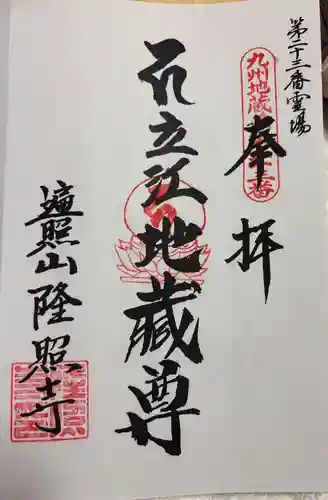 第二十三番霊場
九州地蔵
三番
奉拝
立江地蔵尊
照山隆照寺